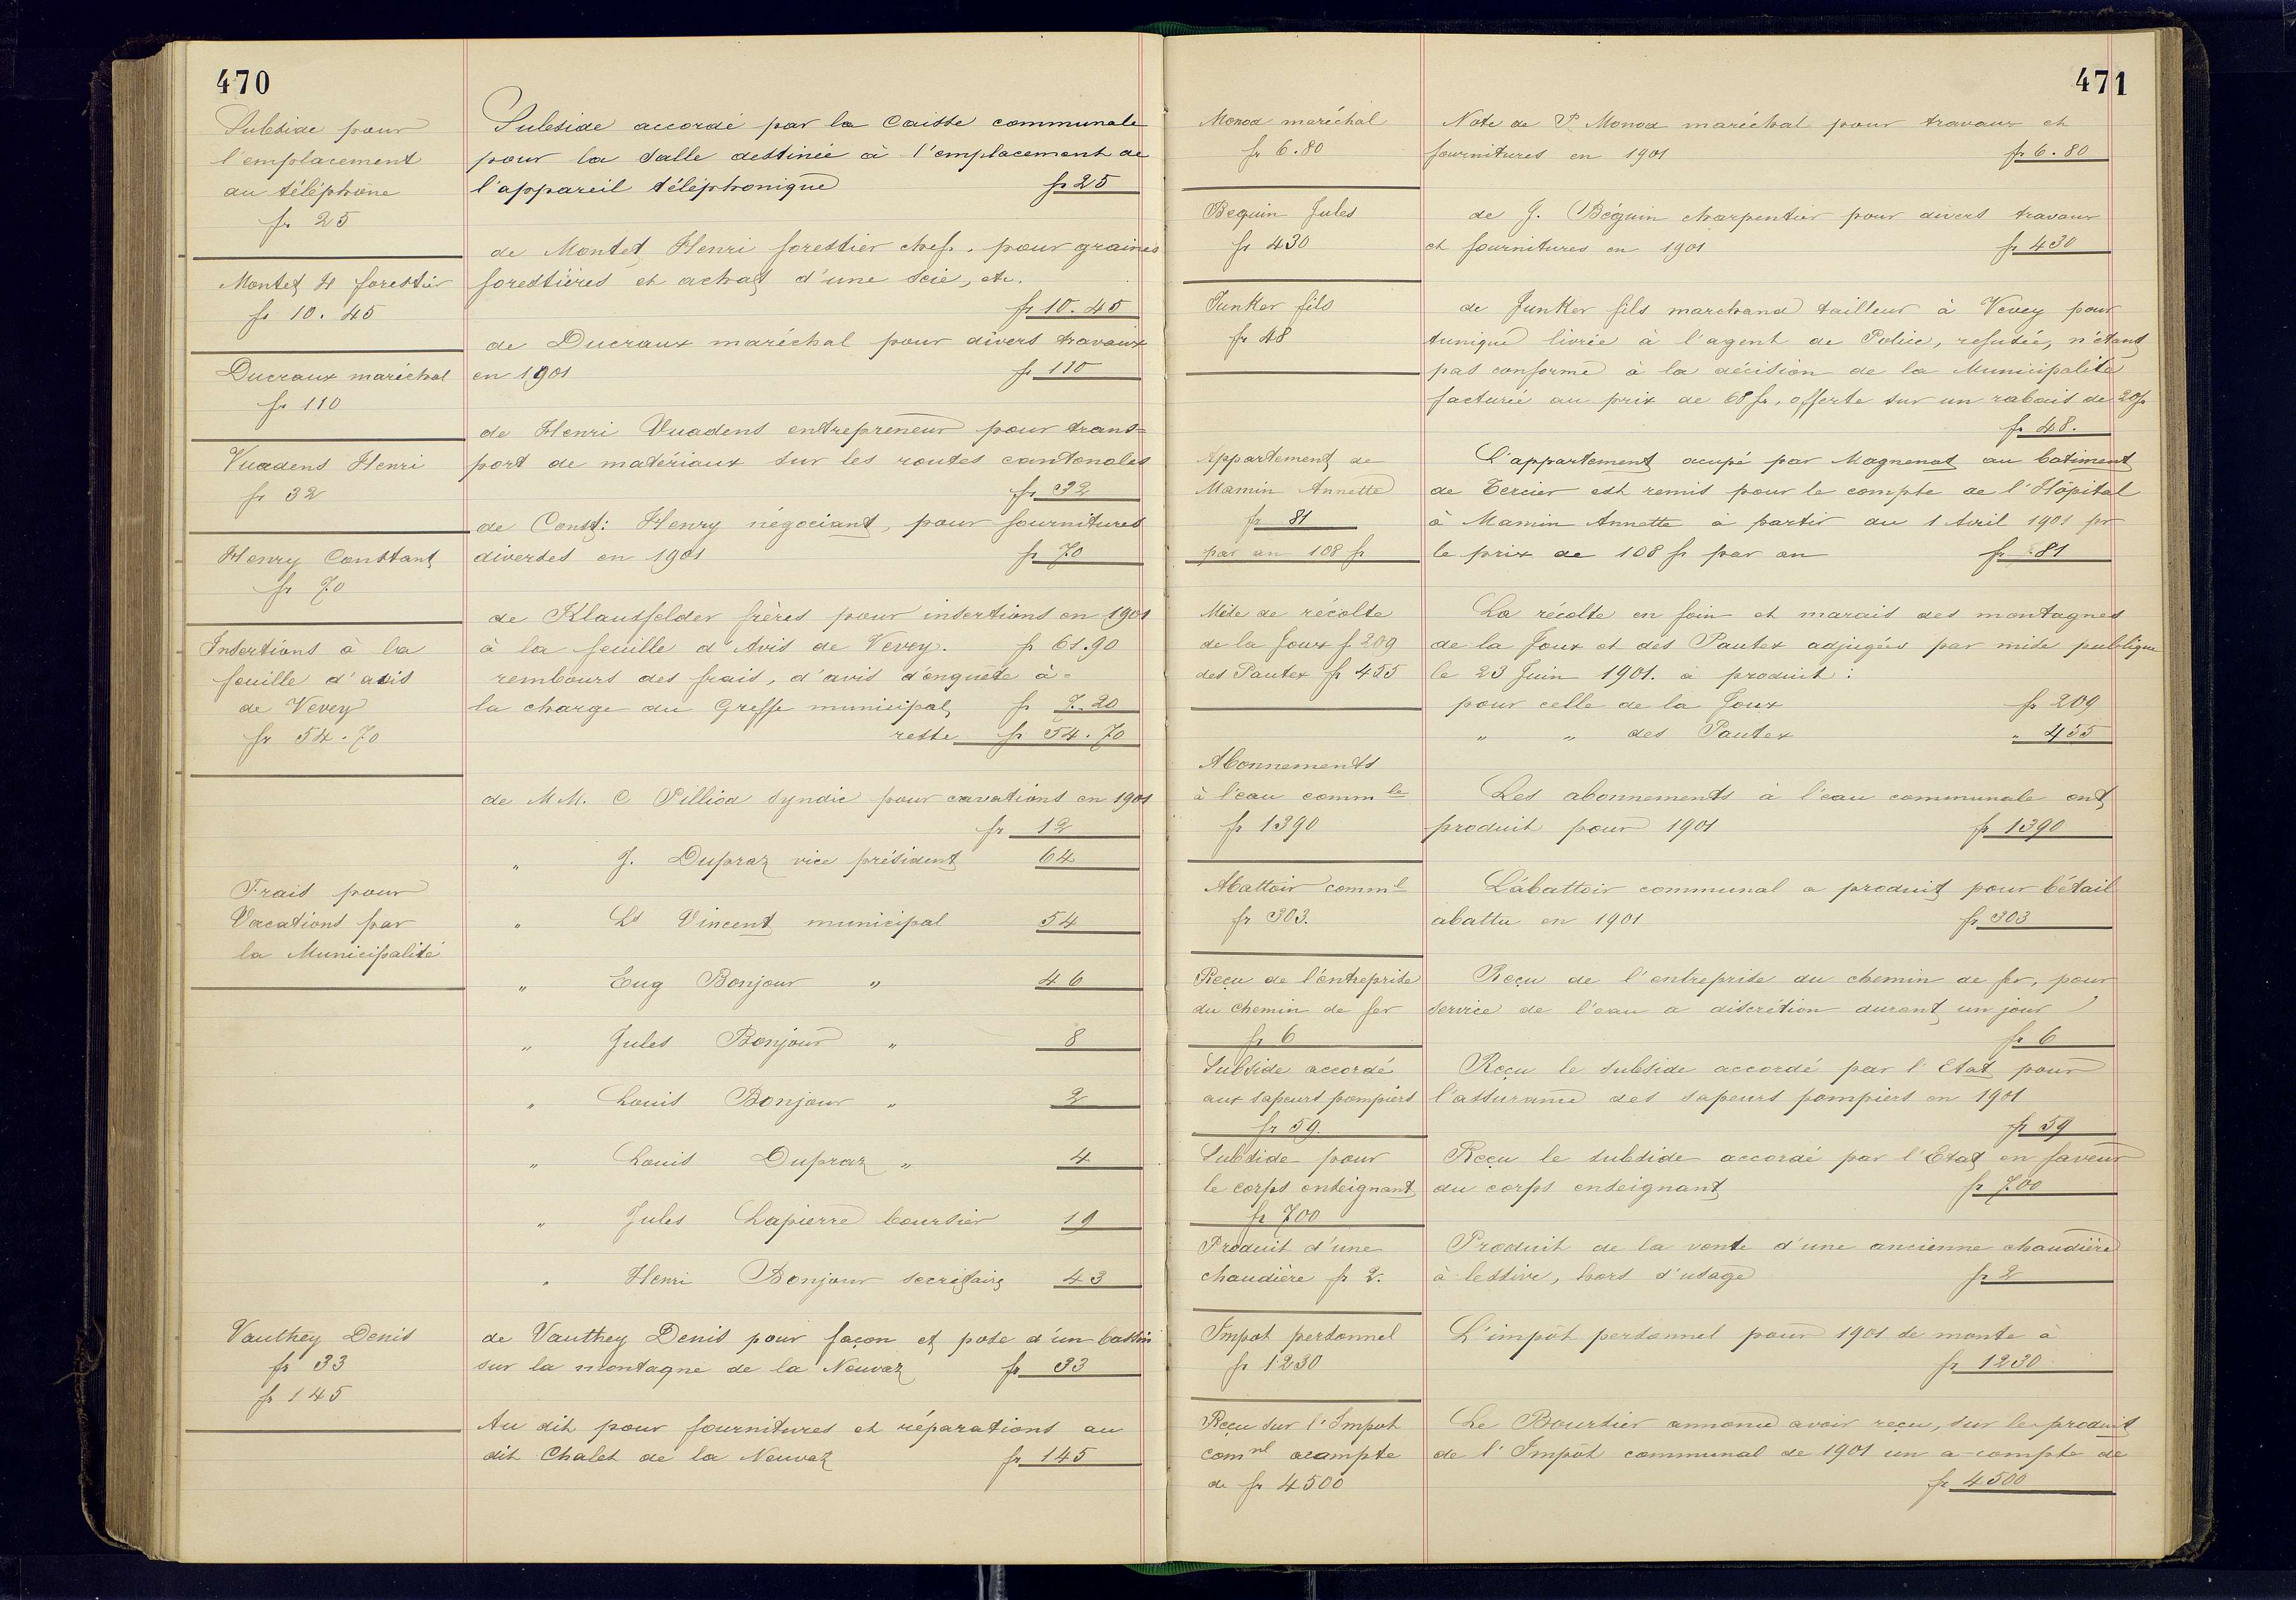 470
Subside pour
l'emplacement
du téléphone
fr 25
Subside accordé par la Caisse communale
pour la salle destinée à l'emplacement de
l'appareil téléphonique fr 25
Montet H forestier
fr 10.45
de Montet Henri forestier chef, pour graines
forestières et achat d'une scie, etc.
fr 10.45
Ducraux maréchal
fr 110
de Ducraux maréchal pour divers travaux
en 1901 fr 110
Vuadens Henri
fr 32
de Henri Vuadens entrepreneur pour trans=
port de matériaux sur les routes cantonales
fr 32
Henry Constant
fr 70
de Const: Henry négociant, pour fournitures
diverses en 1901 fr 70
Insertions à la
feuille d'avis
de Vevey
fr 54.70
de Klausfelder frères pour insertions en 1901
à la feuille d'Avis de Vevey. fr 61.90
rembours des frais, d'avis d'enquête à-
la charge du Greffe municipal fr 7.20
reste fr 54.70
Frais pour
Vacations par
la Municipalité
de MM. C Pilliod syndic pour vacations en 1901
fr 12
" J. Dupraz vice président 64
" Ls Vincent municipal 54
" Eug Bonjour " 46
" Jules Bonjour " 8
" Louis Bonjour " 2
" Louis Dupraz " 4
" Jules Lapierre boursier 19
" Henri Bonjour secrétaire 43
Vauthey Denis
fr 33
fr 145
de Vauthey Denis pour façon et pose d'un bassin
sur la montagne de la Neuvaz fr 33
Au dit pour fournitures et réparations au
dit Chalet de la Neuvaz fr 145
471
Monod maréchal
fr 6.80
Note de P. Monod maréchal pour travaux et
fournitures en 1901 fr 6.80
Beguin Jules
fr 430
de J. Béguin charpentier pour divers travaux
et fournitures en 1901 fr 430
Junker fils
fr 48
de Junker fils marchand tailleur à Vevey pour
tunique livrée à l'agent de Police, refusée, n'étant
pas conforme à la décision de la Municipalité
facturée au prix de 68 fr, offerte sur un rabais de 20 fr
fr 48.
Appartement de
Mamin Annette
fr 81
par an 108 fr
L'appartement ocupé par Magnenat au batiment
de Tercier est remis pour le compte de l'Hôpital
à Mamin Annette à partir du 1 Avril 1901 pr
le prix de 108 fr par an fr 81
Mise de récolte
de la Joux f 209
des Pautex fr 455
La récolte en foin et marais des montagnes
de la Joux et des Pautex adjugées par mise publique
le 23 Juin 1901. a produit:
pour celle de la Joux fr 209
" " des Pautex " 455
Abonnements
à l'eau commle
fr 1390
Les abonnements à l'eau communale ont
produit pour 1901 fr 1390
Abattoir comml
fr 303.
L'abattoir communal a produit pour bétail
abattu en 1901 fr 303
Reçu de l'entreprise
du chemin de fer
fr 6
Reçu de l'entreprise du chemin de fer, pour
service de l'eau a discrétion durant un jour
fr 6
Subside accordé
aux sapeurs pompiers
fr 59.
Reçu le subside accordé par l'Etat pour
l'assurance des sapeurs pompiers en 1901
fr 59
Subside pour
le corps enseignant
fr 700
Reçu le subside accordé par l'Etat en faveur
du corps enseignant fr 700
Produit d'une
chaudière fr 2.
Produit de la vente d'une ancienne chaudière
à lessive, hors d'usage fr 2
Impot personnel
fr 1230
L'impôt personnel pour 1901 se monte à
fr 1230
Reçu sur l'Impot
comnl acompte
de fr 4500
Le Boursier annonce avoir reçu, sur le produit
de l'Impôt communal de 1901 un a-compte de
fr 4500